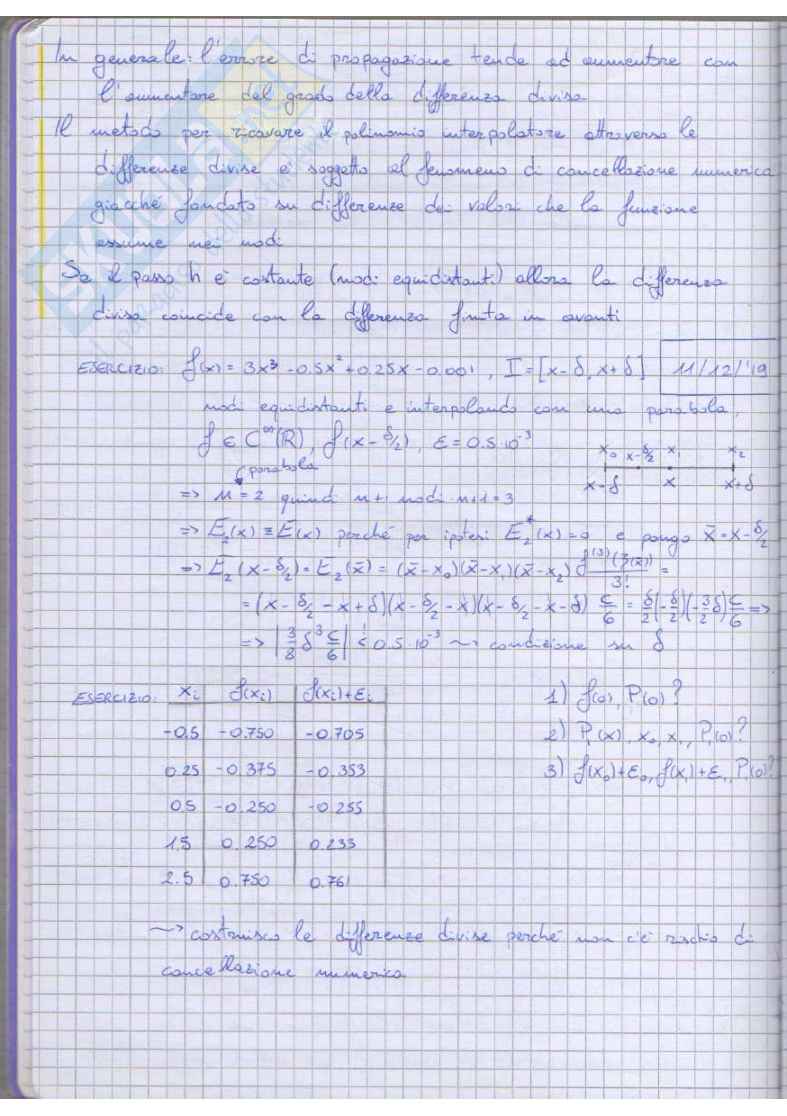 In generale: l'errore di propagazione tende ad aumentare con
l'aumentare del grado della differenza divisa
Il metodo per ricavare il polinomio interpolatore attraverso le
differenze divise è soggetto al fenomeno di cancellazione numerica
giacché fondato su differenze dei valori che la funzione
assume nei nodi
Se il passo h è costante (nodi equidistanti) allora la differenza
divisa coincide con la differenza finita in avanti
ESERCIZIO: f(x) = 3x³ - 0.5x² + 0.25x - 0.001, I = [x-δ, x+δ] 11/12/'19
nodi equidistanti e interpolando con una parabola,
f ∈ C^∞(ℝ), f(x-δ/2), ε = 0.5·10⁻³
x₀ x-δ/2 x₁ x₂
parabola
x-δ x x+δ
=> n = 2 quindi n+1 nodi: n+1=3
=> E₂(x) ≡ E(x) perché per ipotesi E₂*(x)=0 e pongo x̄=x-δ/2
=> E₂(x-δ/2) = E₂(x̄) = (x̄-x₀)(x̄-x₁)(x̄-x₂) f⁽³⁾(ξ(x̄))/3! =
= (x-δ/2-x+δ)(x-δ/2-x)(x-δ/2-x-δ) C/6 = δ/2(-δ/2)(-3/2δ)C/6 =>
=> |3/8 δ³ C/6| < 0.5·10⁻³ ~> condizione su δ
ESERCIZIO: xᵢ f(xᵢ) f(xᵢ)+εᵢ 1) f(0), P(0)?
-0.5 -0.750 -0.705 2) P₁(x), x₀, x₁, P₁(0)?
0.25 -0.375 -0.353 3) f(x₀)+ε₀, f(x₁)+ε₁, P₁(0)?
0.5 -0.250 -0.255
1.5 0.250 0.233
2.5 0.750 0.761
~> costruisco le differenze divise perché non c'è rischio di
cancellazione numerica